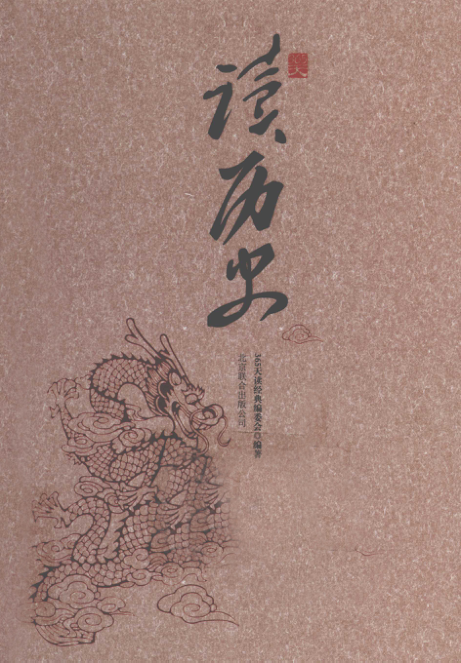 读历史
365天读经典编委会◎编著
北京联合出版公司